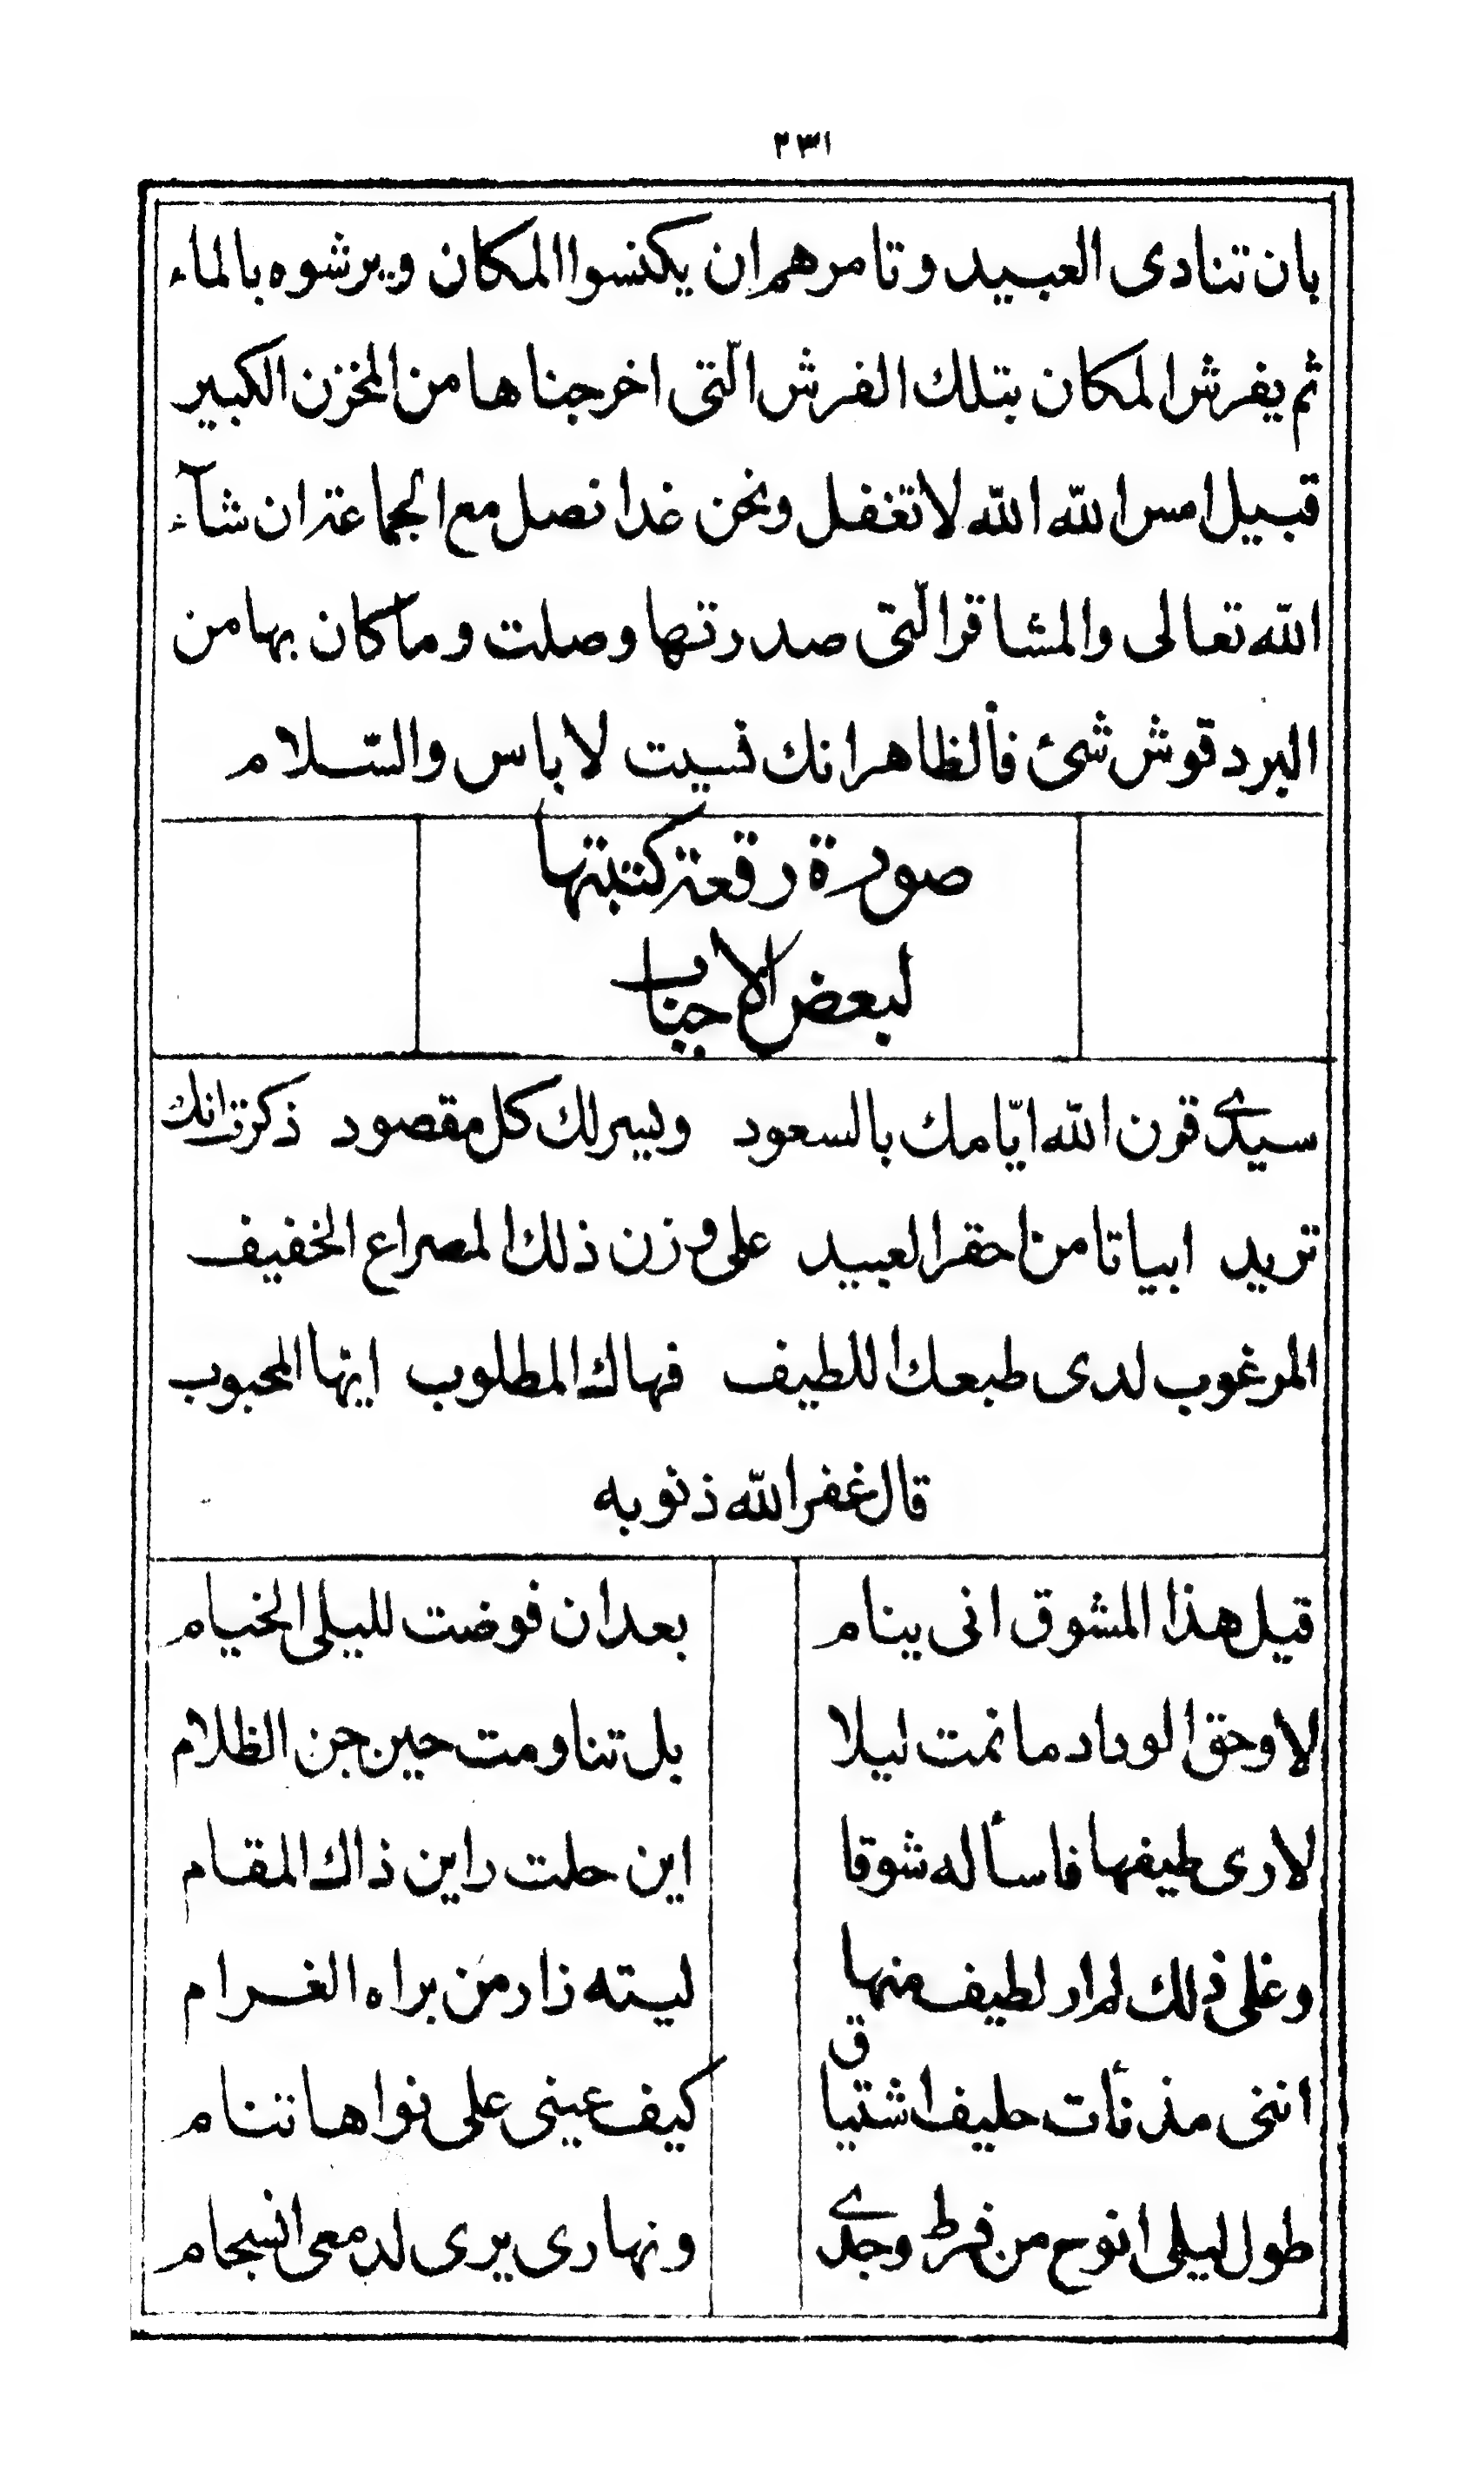 ٢٣١
بان تنادى العبيد وتامرهم ان يكنسوا المكان ويرشوه بالماء
ثم يفرش المكان بتلك الفرش الّتى اخرجناها من المخزن الكبير
قبيل امس الله الله لا تغفل ونحن غدا نصل مع الجماعة ان شآء
الله تعالى والمشاقر الّتى صدرتها وصلت وما كان بها من
البردقوش شئ فالظاهر انك نسيت لا باس والسّلام
صورة رقعة كتبتها
لبعض الاحباب
سيدى قرن الله ايّامك بالسعود ويسر لك كل مقصود ذكرت انك
تريد ابياتا من احقر العبيد على وزن ذلك المصراع الخفيف
المرغوب لدى طبعك اللطيف فهاك المطلوب ايها المحبوب
قال غفر الله ذنوبه
قيل هذا المشوق انى ينام بعد ان فوضت لليلى الخيام
لا وحق الوداد ما نمت ليلا بل تناومت حين جن الظلام
لارى طيفها فاسأله شوقا اين حلت واين ذاك المقام
وعلى ذلك لم ار لطيف منها ليته زار من براه الغرام
اننى مذ نأت حليف اشتياق كيف عينى على نواها تنام
طول ليلى انوح من فرط وجدى ونهارى يرى لدمعى انسجام